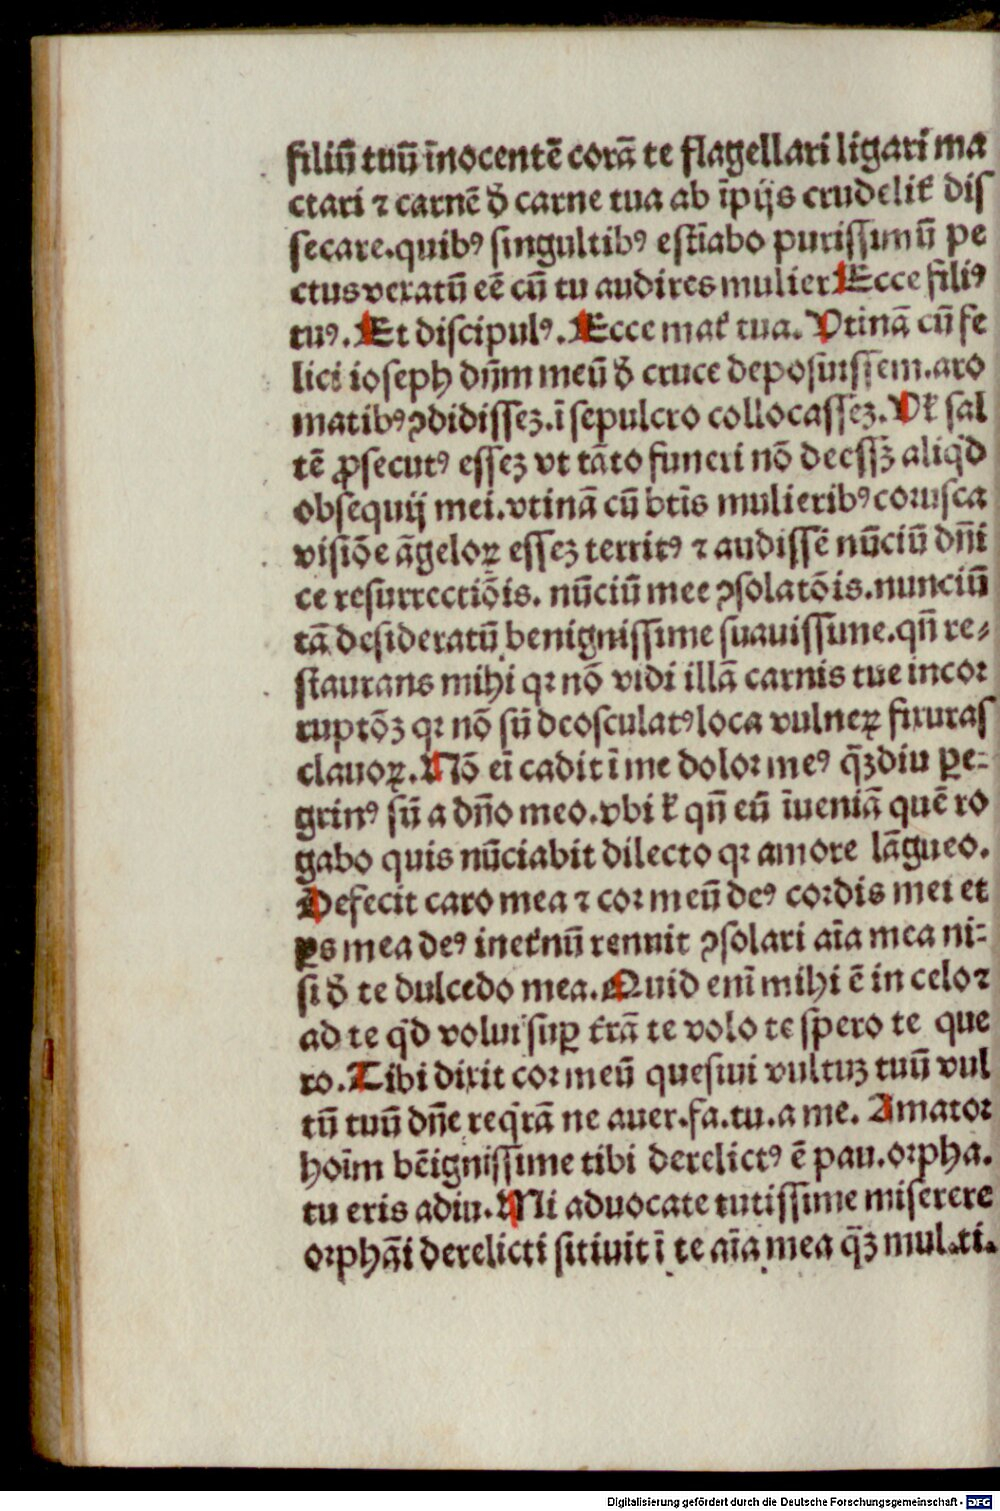 filiū tuū īnocentē corā te flagellari ligari ma
ctari ⁊ carnē đ carne tua ab īpijs crudelit̉ dis
secare.quibꝰ singultibꝰ estīabo purissimū pe
ctus vexatū eē cū tu audires mulier Ecce filiꝰ
tuꝰ. Et discipulꝰ. Ecce mat̉ tua. Vtinā cū fe
lici ioseph dn̄m meū đ cruce deposuissem.aro
matibꝰ ꝯdidissez.ī sepulcro collocassez. Vt̉ sal
tē ꝓsecutꝰ essez vt tāto funeri nō deessꝫ aliq̇d
obsequij mei.vtinā cū btīs mulieribꝰ corusca
visiōe āgeloꝝ essez territꝰ ⁊ audissē nūciū dn̄i
ce resurrectiōis. nūciū mee ꝯsolatōis.nunciū
tā desideratū benignissime suauissime.qn̄ re⸗
staurans mihi qꝛ nō vidi illā carnis tue incor
ruptōꝫ qꝛ nō sū deosculatꝰ loca vulneꝝ fixuras
clauoꝝ. Nō eī cadit ī me dolor meꝰ q̄ꝫdiu ꝑe⸗
grinꝰ sū a dn̄o meo.vbi t̉ qn̄ eū īueniā quē ro
gabo quis nūciabit dilecto qꝛ amore lāgueo.
Defecit caro mea ⁊ cor meū deꝰ cordis mei et
ꝑs mea deꝰ inet̉nū rennit ꝯsolari aīa mea ni⸗
si đ te dulcedo mea. Quid enī mihi ē in celo ⁊
ad te q̇d volui suꝑ t̉rā te volo te spero te que
ro. Tibi dixit cor meū quesiui vultuꝫ tuū vul
tū tuū dn̄e req̇rā ne auer.fa.tu.a me. Amator
hoīm bēignissime tibi derelictꝰ ē pau.orpha.
tu eris adiu. Mi aduocate tutissime miserere
orphāi derelicti sitiuit ī te aīa mea q̄ꝫ mul.ti.
Digitalisierung gefördert durch die Deutsche Forschungsgemeinschaft - DFG